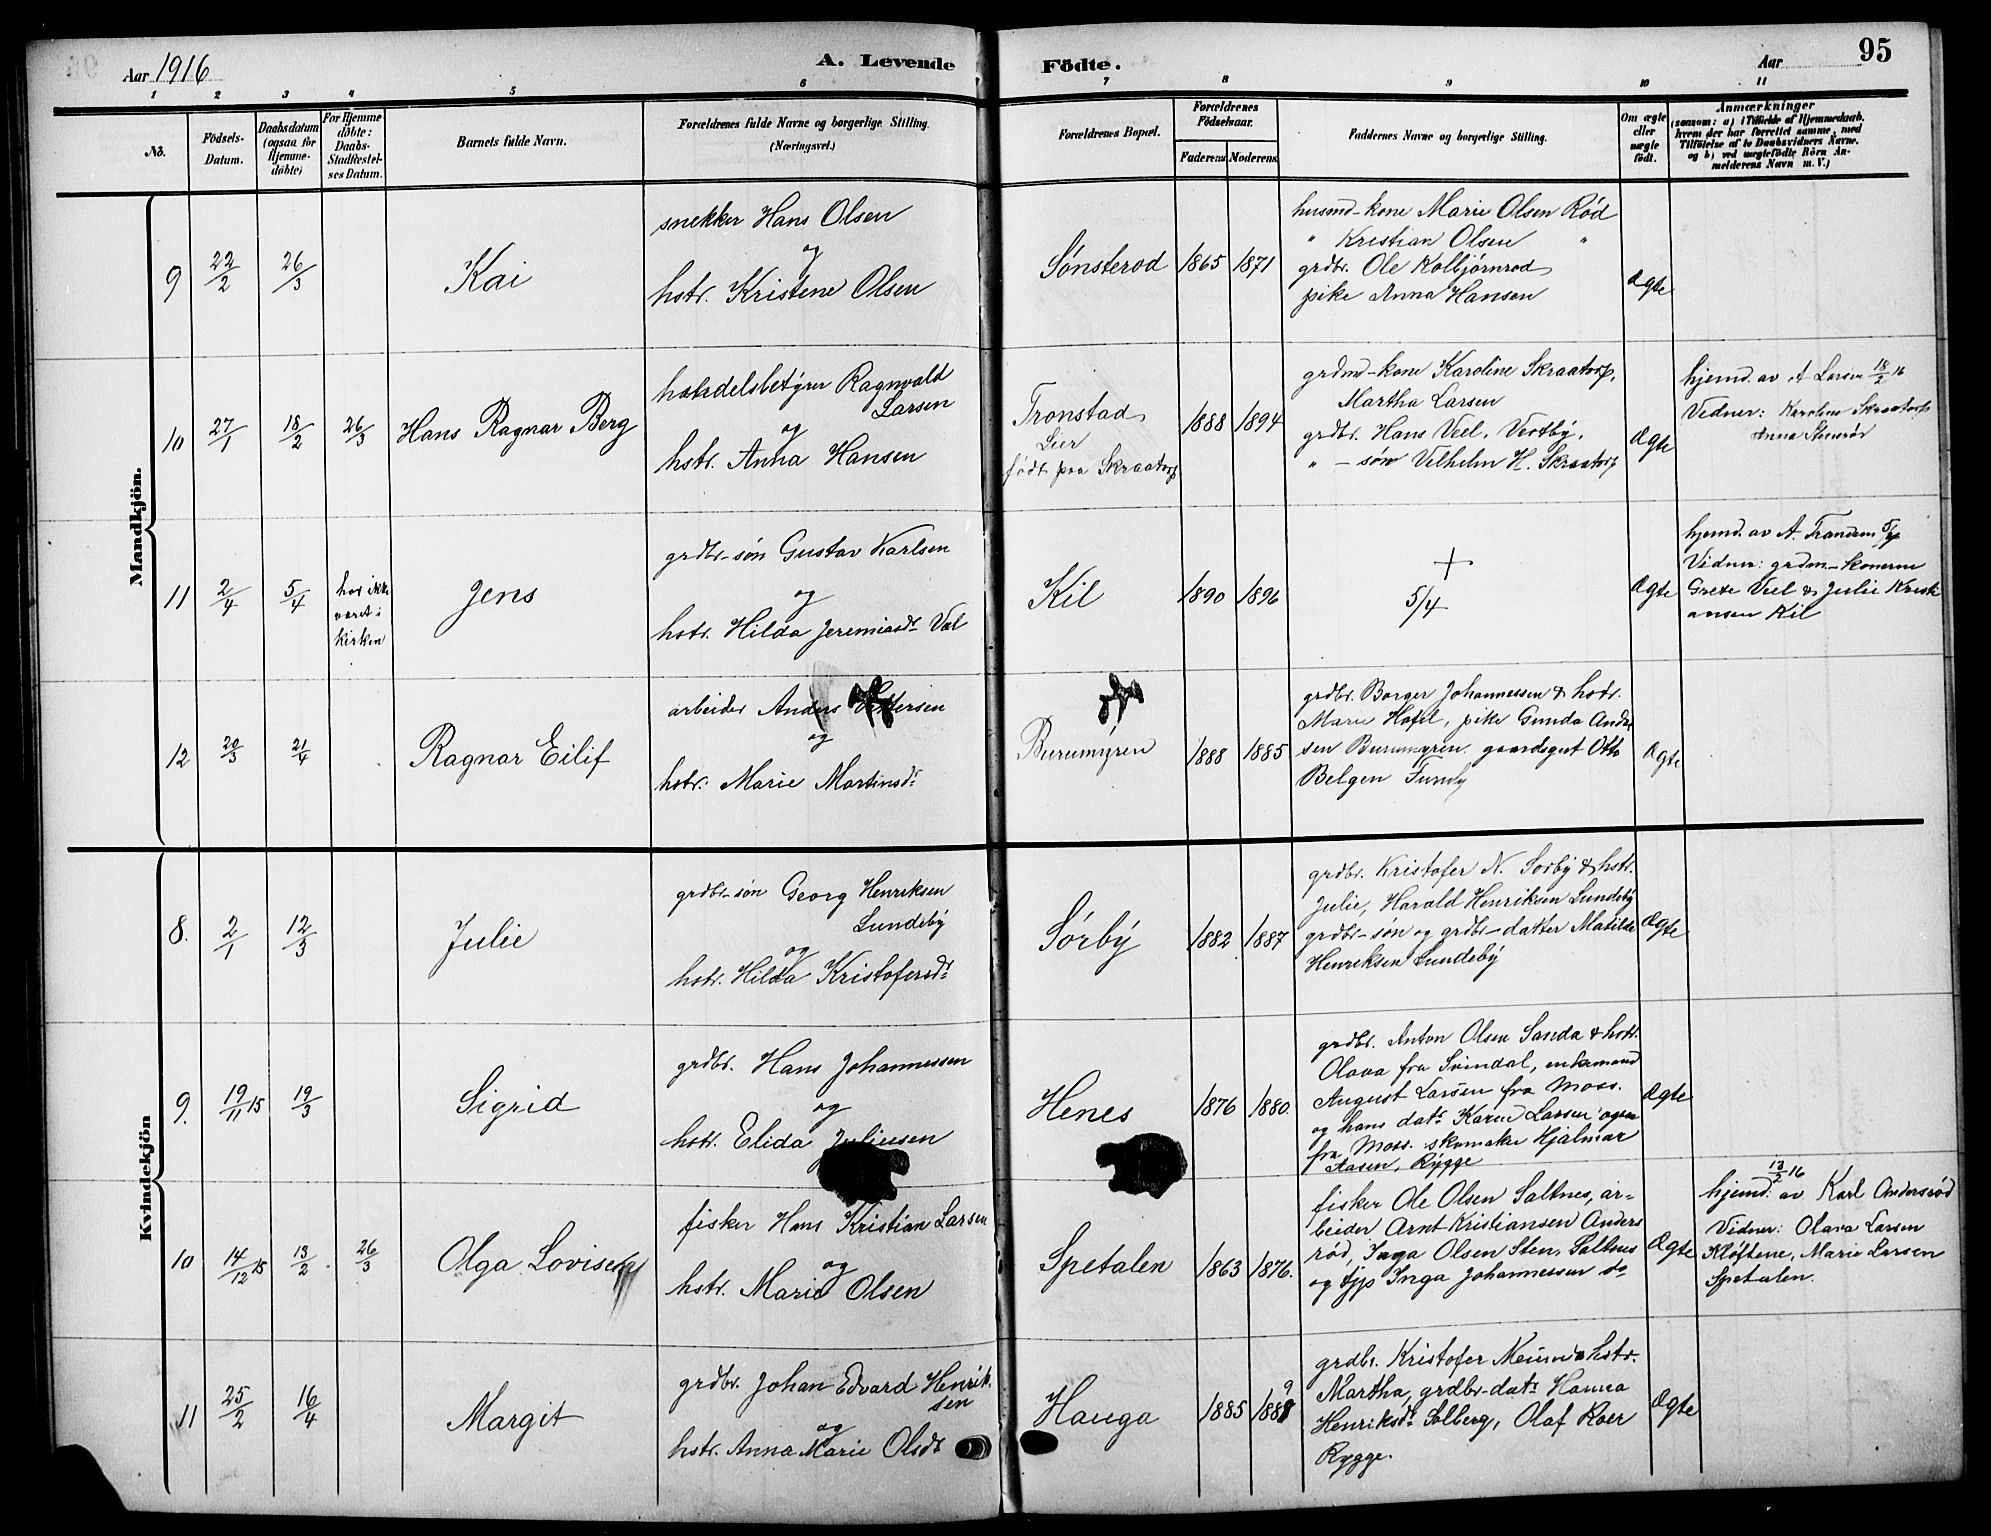 Aar 1916
A. Levende Födte.
Aar
95
1 2 3 4 5 6 7 8 9 10 11
No.
Födsels-Datum.
Daabsdatum (ogsaa for Hjemme-døbte)
For Hjemme døbte: Daabs-Stadfæstel-ses Datum.
Barnets fulde Navn.
Forældrenes fulde Navne og borgerlige Stilling. (Næringsvei.)
Forældrenes Bopæl.
Forældrenes Födselsaar.
Faderens Moderens
Faddernes Navne og borgerlige Stilling.
Om ægte eller uægte födt.
Anmærkninger
(saasom: a) i Tilfælde af Hjemmedaab,
hvem der har forrettet samme, med
Tilföielse af to Daabsvidners Navne,
og b) ved uægtefödte Börn An-
melderens Navn m. V.)
Mandkjön.
9 22/2 26/3
Kai
snekker Hans Olsen
og
hstr. Kristene Olsen
Sønsterød 1865 1871
husmd-kone Marie Olsen Rød
" Kristian Olsen "
grdbr. Ole Kolbjørnrød
pike Anna Hansen
Ægte
10 27/1 18/2 26/3
Hans Ragnar Berg
handelsbetyrer Ragnvald
Larsen
og
hstr. Anna Hansen
Tronstad
Lier
født paa Skraatorp
1888 1894
grdmd-kone Karoline Skraatorp,
Martha Larsen
grdbr. Hans Veel, Vestby.
" - søn Vilhelm H. Skraatorp
Ægte
hjemd. av A Larsen 18/2 16
Vidner: Karoline Skraatorp
Anna
11 2/4 5/4
har ikke
været i
kirken
Jens
grdbr-søn Gustav Karlsen
og
hstr. Hilda Jeremiasdr. Væl
Kil 1890 1896
+
5/4
Ægte
hjemd. av A. 5/4
Vidner: grdm-konerne
Grete Veel & Julie Kristi
ansen Kil
12 20/3 21/4
Ragnar Eilif
arbeider Anders Pettersen
og
hstr. Marie Martinsdr.
Burumyren
1888 1885
grdbr. Borger Johannessen & hstr.
Marie Hafel, pike Gunda Ander
sen Burumyren gaardsgut Otto
Belgen
Ægte
Kvindekjön
8. 2/1 12/3
Julie
grdbr-søn Georg Henriksen
Lundeby
og
hstr. Hilda Kristofersdr.
Sørby 1882 1887
grdbr. Kristofer N. Sørby & hstr.
Julie, Harald Henriksen Lundeby
grdbr-søn og grdbr-datter Matilde
Henriksen Lundeby
Ægte
9. 19/11 15 19/3
Sigrid
grdbr. Hans Johannessen
og
hstr. Elida Juliussen
Henes 1876 1880.
grdbr. Anton Olsen Sanda & hstr.
Olava fra Svindal, enkemand
August Larsen fra Moss.
og hans datr. Karen Larsen ogsaa
fra Moss. skomaker Hjalmar
Aasen, Rygge
Ægte
10 14/12 15 13/2 26/3
Olga Lovise
fisker Hans Kristian Larsen
og
hstr. Marie Olsen
Spetalen 1863 1876.
fisker Ole Olsen Saltnes, ar-
beider Arnt Kristiansen Anders
rød, Inga Olsen Sten, Saltnes
og tjp Inga Johannessen do
Ægte
13/2 16
hjemd. av Karl Andersrød
Vidner: Olava Larsen
Kløftene, Marie Larsen
Spetalen.
11 25/2 16/4
Margit
grdbr. Johan Edvard Henrik
sen
og
hstr. Anna Marie Olsdr
Hauga 1885 1889
grdbr. Kristofer Meium & hstr.
Martha, grdbr-datr. Hanna
Henriksdr. Solberg, Olaf Roer
Rygge.
Ægte